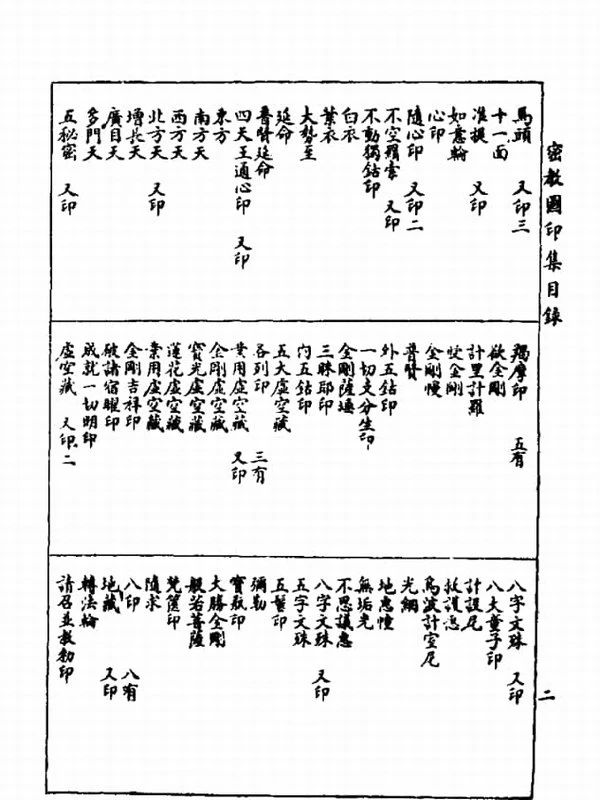 密教圖印集目錄
馬頭 又印三
十一面
准提 又印
如意輪
心印
隨心印 又印二
不空羂索 又印
不動獨鈷印
白衣
葉衣
大勢至
延命
普賢延命
四天王通心印 又印
東方
南方天
西方天
北方天 又印
增長天
廣目天
多門天
五秘密 又印
羯摩印 五有
欲金剛
計里計羅
愛金剛
金剛慢
普賢
外五鈷印
一切支分生印
金剛薩埵
三昧耶印
內五鈷印
五大虛空藏
各列印 三有
業用虛空藏 又印
金剛虛空藏
寶光虛空藏
蓮花虛空藏
業用虛空藏
金剛吉祥印
破諸宿曜印
成就一切明印
虛空藏 又印二
八字文殊 又印
八大童子印
計設尼
救護惠
烏波計室尼
光網
地惠幢
無垢光
不思議惠
八字文殊 又印
五字文殊
五髻印
彌勒
寶瓶印
大勝金剛
般若菩薩
梵篋印
隨求
八印 八有
地藏 又印
轉法輪
請召並教勑印
二